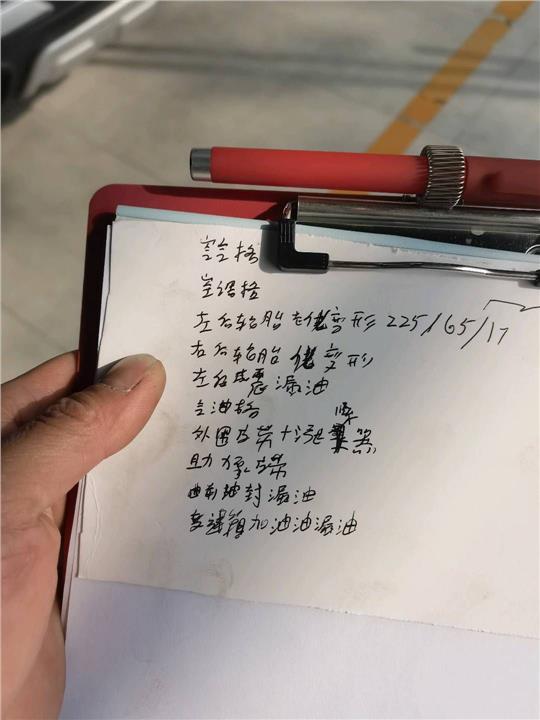 空气格
空调格
左后轮胎老化变形 225/65/17
右后轮胎老化变形
左后减震漏油
汽油格
外围皮带+涨紧器
助力泵皮带
曲轴油封漏油
变速箱加油油漏油